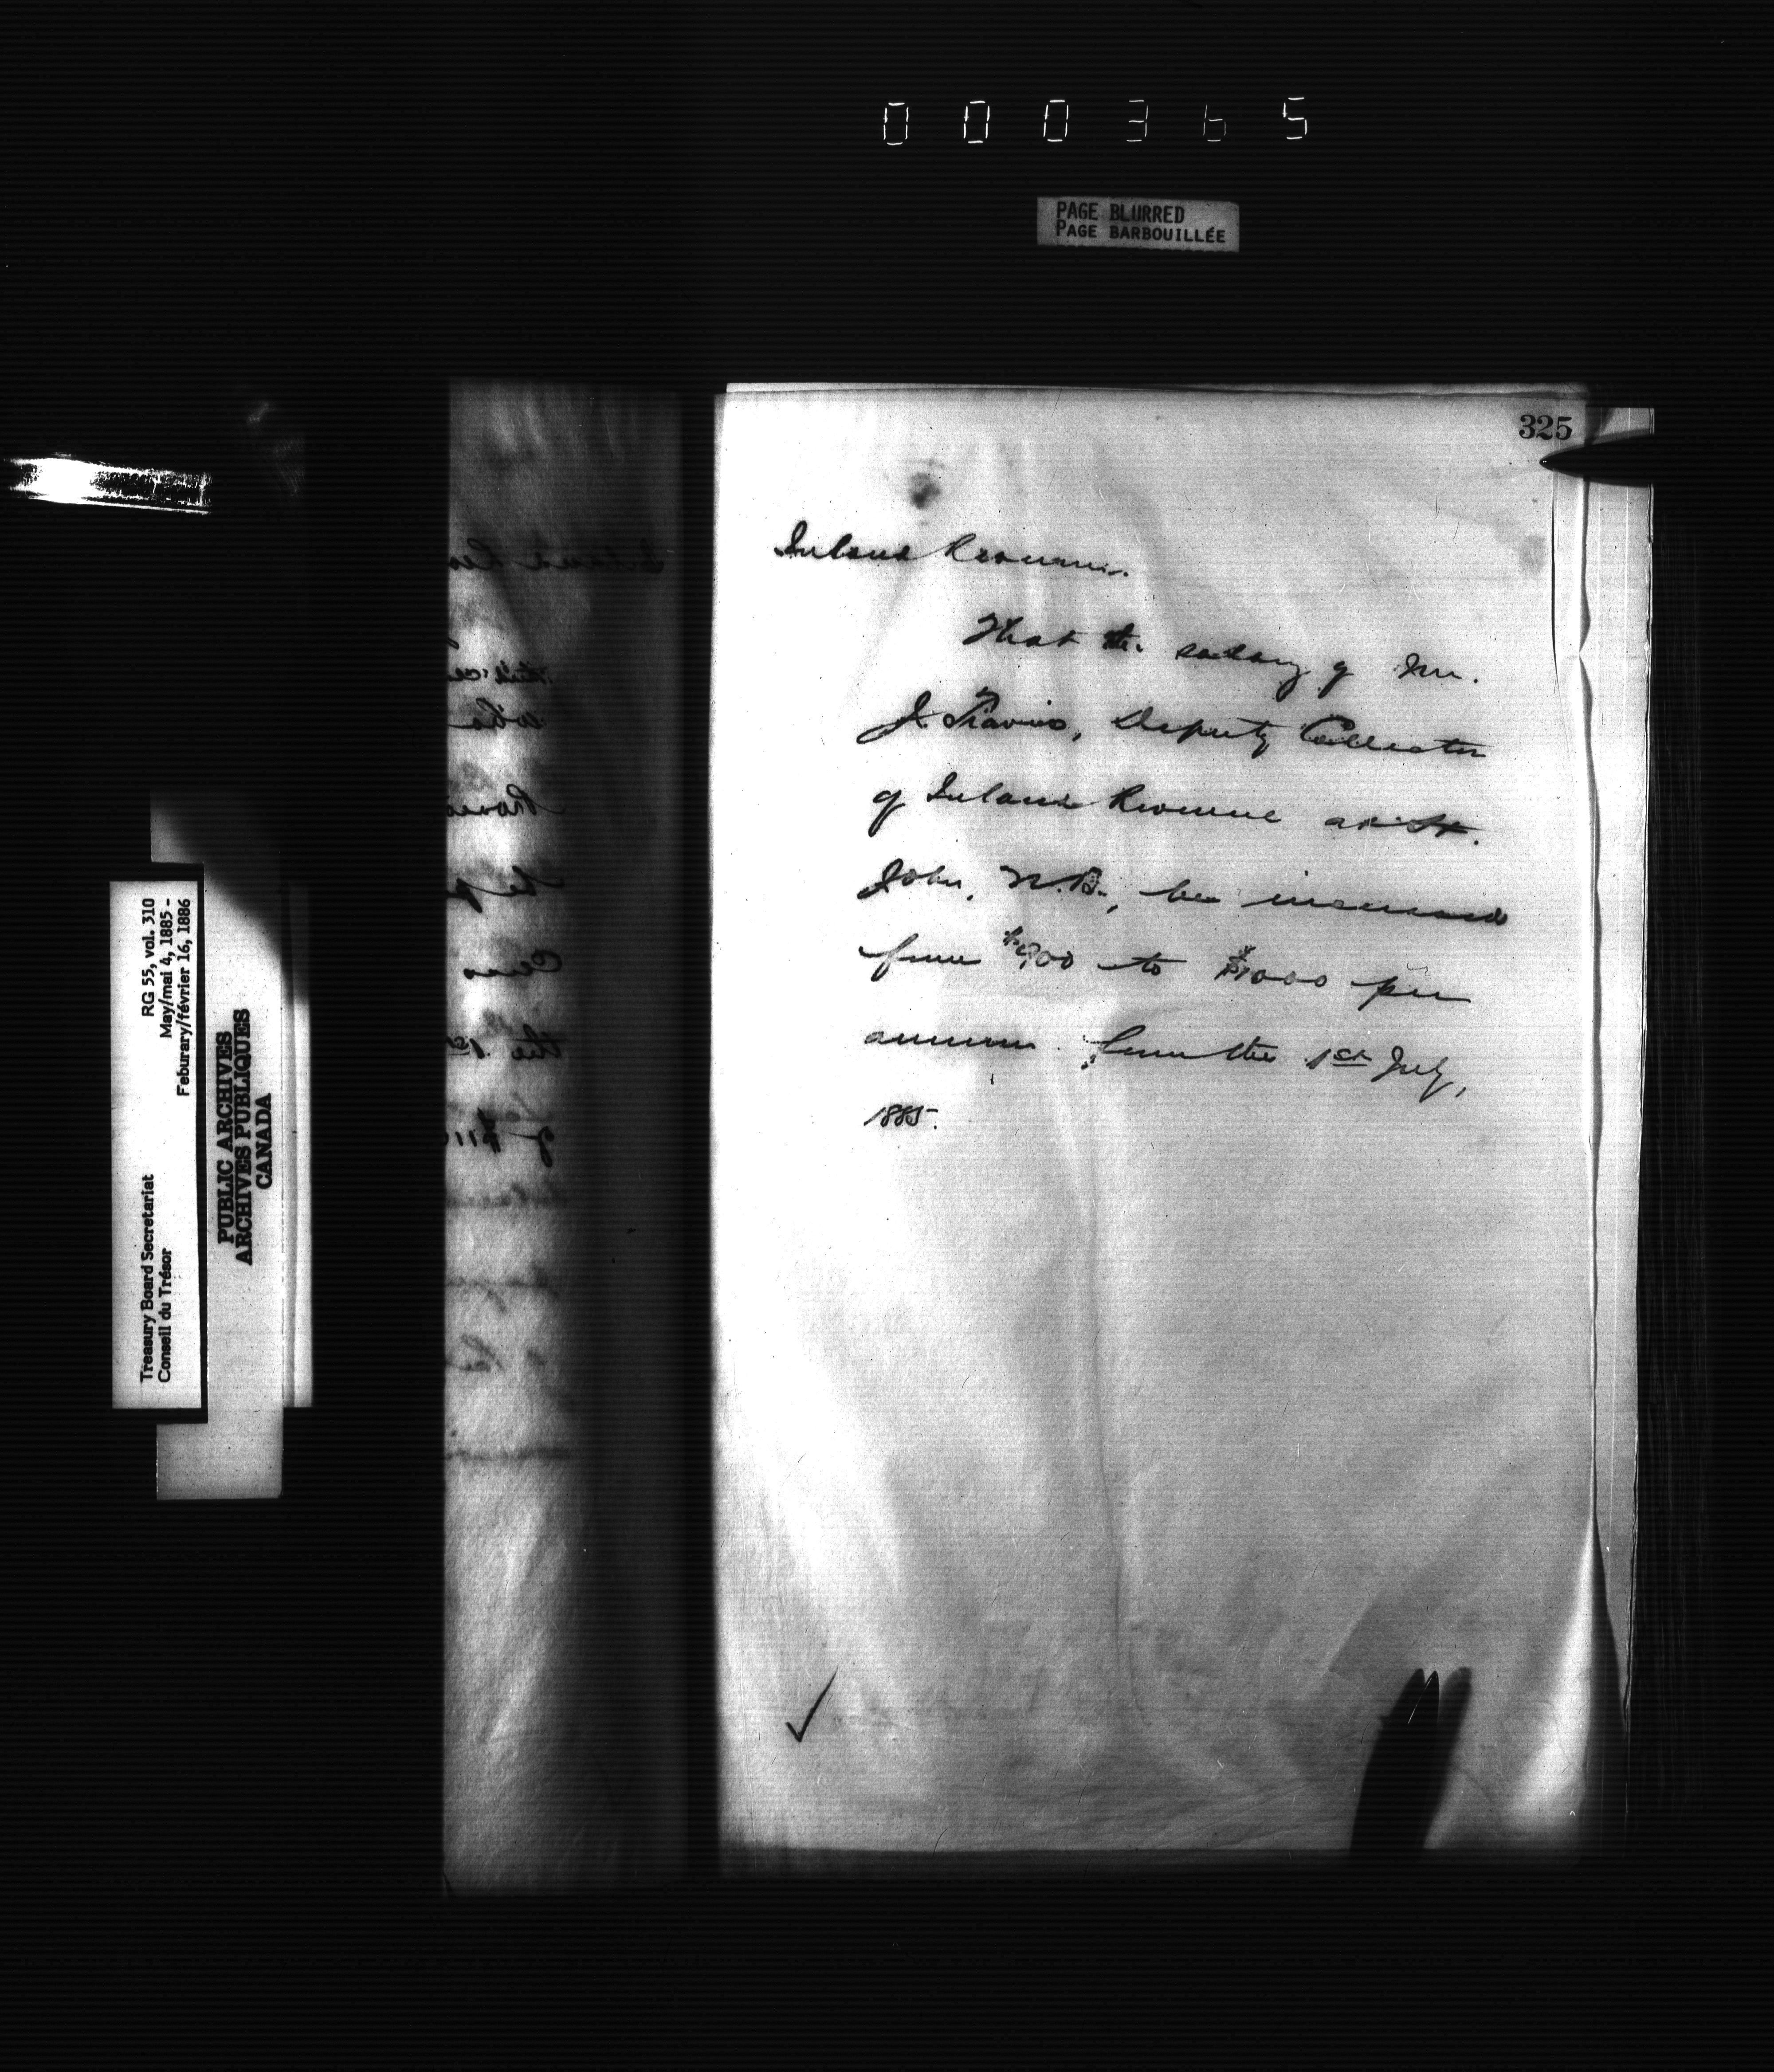 000365
PAGE BLURRED
PAGE BARBOUILLÉE
325
Inland Revenue.
That the salary of Mr.
J. Travis, Deputy Collector
of Inland Revenue at St.
John, N.B., be increased
from $900 to $1000 per
annum from the 1st July,
1885.
Treasury Board Secretariat RG 55, vol. 310
Conseil du Trésor May/mai 4, 1885 -
Feburary/février 16, 1886
PUBLIC ARCHIVES
ARCHIVES PUBLIQUES
CANADA